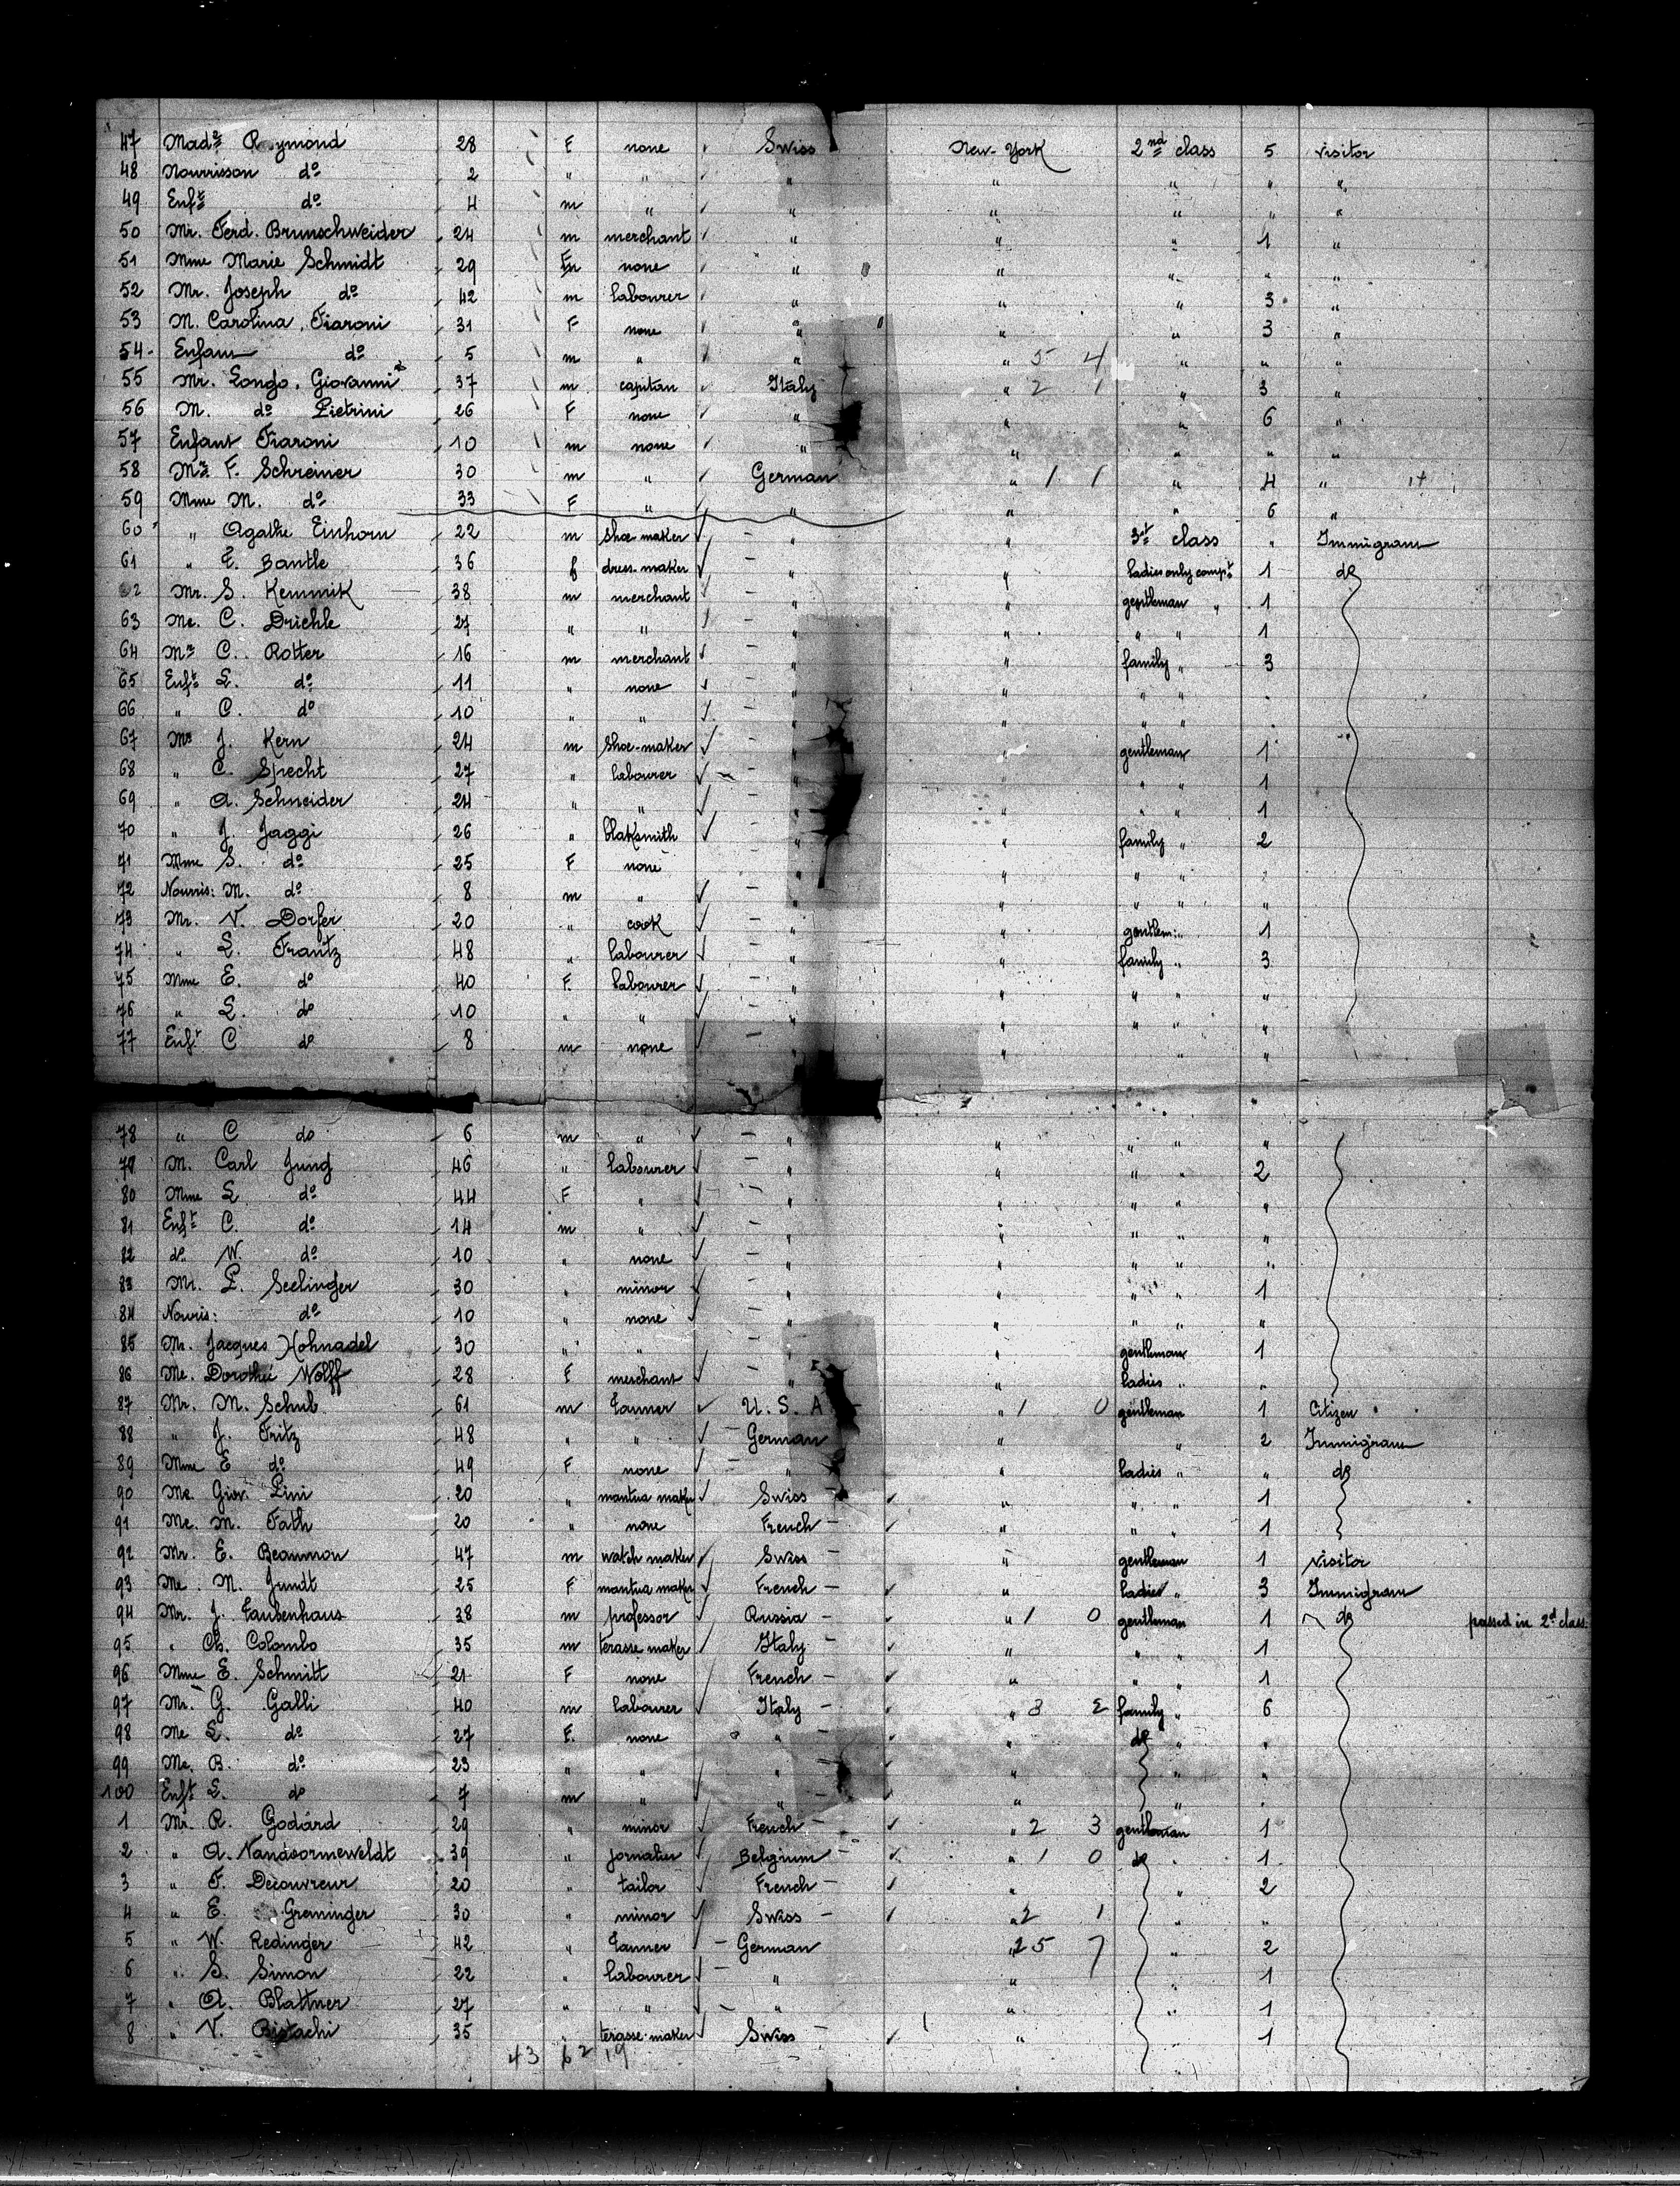 47 Made Raymond 28 F none Swiss New-York 2nd class 5 visitor
48 Nourrisson do 2 " " " " " " "
49 Enft do 4 m " " " " " "
50 Mr. Ferd. Brunschweider 24 m merchant " " " 1 "
51 Mme Marie Schmidt 29 F none " " " " "
52 Mr. Joseph do 42 m labourer " " " 3 "
53 M. Carolina. Fiaroni 31 F none " " " 3 "
54 Enfant do 5 m " " " 5 4 " " "
55 Mr. Longo. Giovanni 37 m capitan Italy " 2 1 " 3 "
56 M. do Pietrini 26 F none " " " 6 "
57 Enfant Fiaroni 10 m none " " " " "
58 Mr F. Schreiner 30 m " German " 1 1 " 4 "
59 Mme M. do 33 F " " " " 6 "
60 " Agathe Einhorn 22 m shoe-maker " " 3t class " Immigrant
61 " E. Bantle 36 f dress-maker " " ladies only compt 1 do
62 Mr. S. Kemmik 38 m merchant " " gentleman " 1
63 Me. C. Driehle 27 " " " " " " 1
64 Mr C. Rotter 16 m merchant " " family " 3
65 Enft L. do 11 " none " " " " "
66 " C. do 10 " " " " " " "
67 Mr J. Kern 24 m shoe-maker " " gentleman 1
68 " C. Specht 27 " labourer " " " " 1
69 " A. Schneider 24 " " " " " " 1
70 " J. Jaggi 26 " blaksmith " " family " 2
71 Mme S. do 25 F none " " " " "
72 Nourris: M. do 8 m " " " " " "
73 Mr. V. Dorfer 20 " cook " " gentlem: 1
74 " L. Frantz 48 " labourer " " family " 3
75 Mme E. do 40 F. labourer " " " " "
76 " L. do 10 " " " " " " "
77 Enft C do 8 m none " " " "
78 " C do 6 m " " " " " "
79 M. Carl Jung 46 " labourer " " " " 2
80 Mme L do 44 F " " " " " "
81 Enft C. do 14 m " " " " " "
82 do W. do 10 " none " " " " "
83 Mr. L. Seelinger 30 " minor " " " " 1
84 Nouris: do 10 " none " " " " "
85 Mr. Jacques Hohnadel 30 " " " " gentleman 1
86 Me. Dorothée Wolff 28 F merchant " " ladies " "
87 Mr. M. Schub 61 m tanner U. S. A " 1 0 gentleman 1 Citizen
88 " J. Fritz 48 " " German " " 2 Immigrant
89 Mme E do 49 F none " " ladies " " do
90 Me. Giov. Pini 20 " mantua maker Swiss " " " 1
91 Me. M. Fath 20 " none French " " " 1
92 Mr. E. Beaumon 47 m watch maker Swiss " gentleman 1 visitor
93 Me. M. Jundt 25 F mantua maker French " ladies " 3 Immigram
94 Mr. J. Taubenhaus 38 m professor Russia " 1 0 gentleman 1 do passed in 2d class.
95 " Ch. Colombo 35 m terasse maker Italy " " " 1
96 Mme E. Schmitt 21 F none French " " " 1
97 Mr. G. Galli 40 m labourer Italy " 3 2 family " 6
98 Me L. do 27 F. none " " do " "
99 Me. B. do 23 " " " " "
100 Enft L. do 7 m " " " " "
1 Mr. R. Godard 29 " minor French " 2 3 gentleman 1
2 " A. Vandormerweldt 39 " jornalier Belgium " 1 0 do " 1
3 " F. Decouvreur 20 " tailor French " " 2
4 " E. Greminger 30 " minor Swiss " 2 1 " "
5 " W. Redinger 42 " tanner German " 25 7 " 2
6 " S. Simon 22 " labourer " " " 1
7 " A. Blattner 27 " " " " " 1
8 " V. Bistachi 35 " terasse-maker Swiss " 1
43 62 19